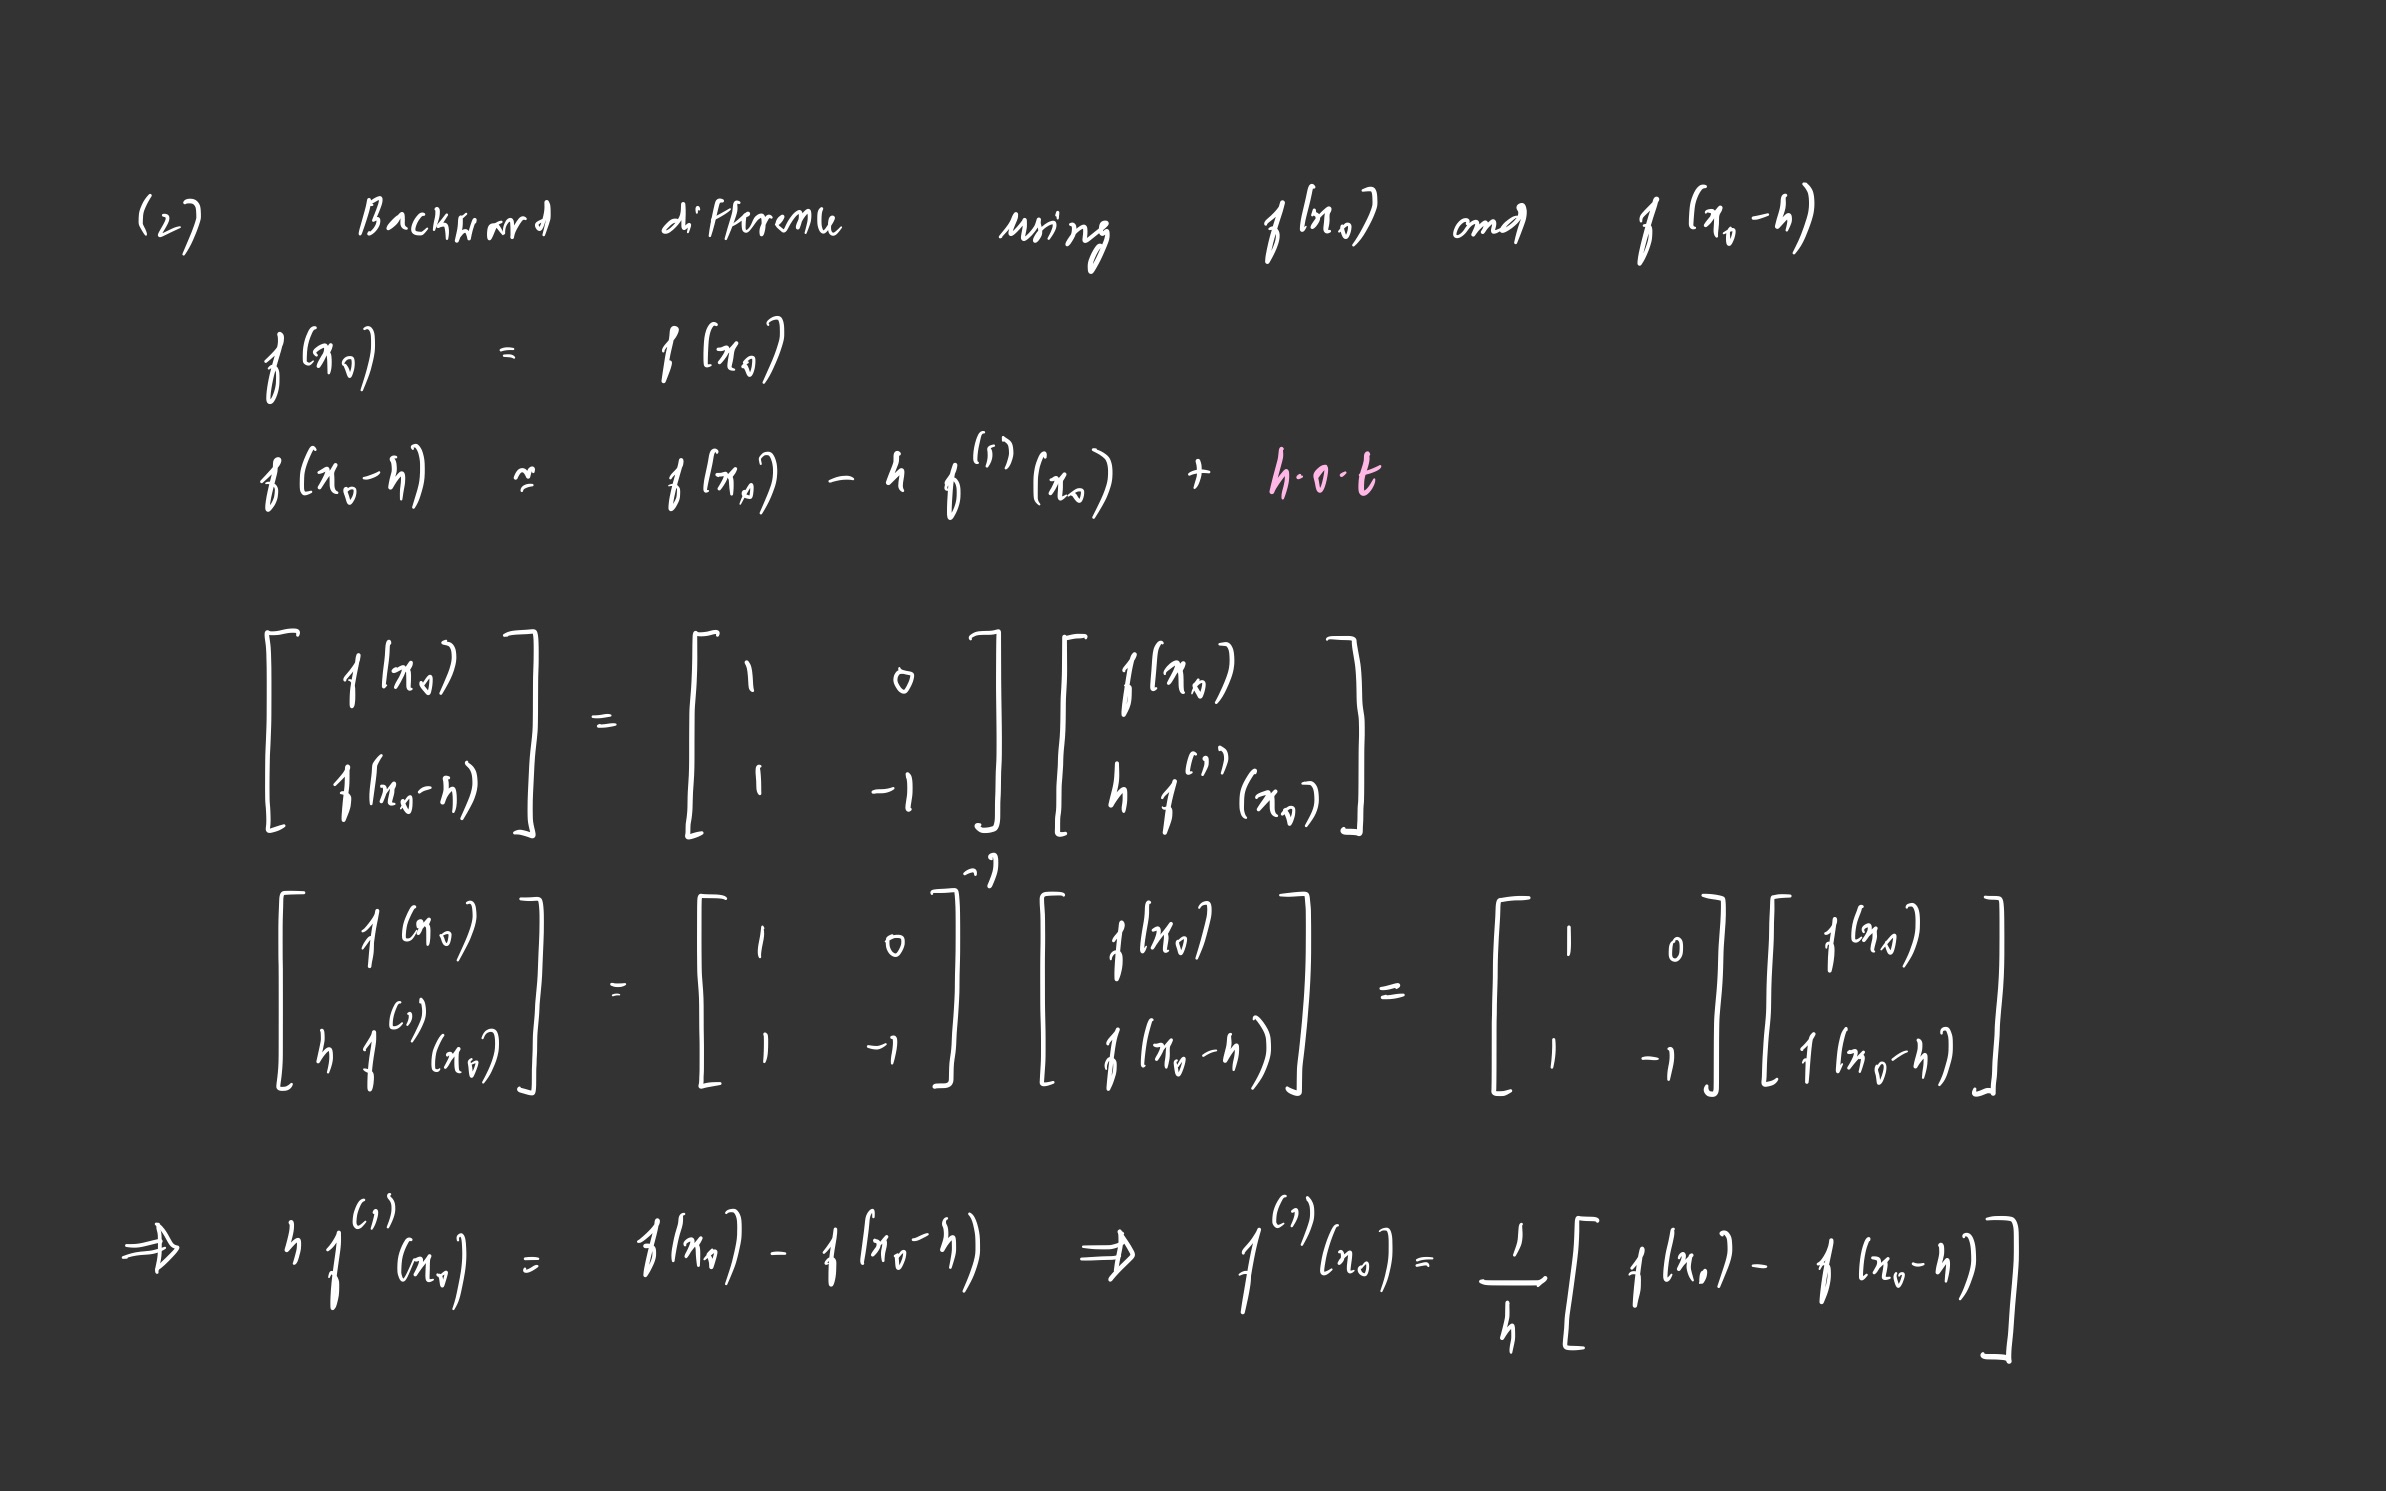 (2) Backward difference using f(x₀) and f(x₀-h)
f(x₀) = f(x₀)
f(x₀-h) ≈ f(x₀) - h f⁽¹⁾(x₀) + h.o.t
[ f(x₀) ; f(x₀-h) ] = [ 1 0 ; 1 -1 ] [ f(x₀) ; h f⁽¹⁾(x₀) ]
[ f(x₀) ; h f⁽¹⁾(x₀) ] = [ 1 0 ; 1 -1 ]⁻¹ [ f(x₀) ; f(x₀-h) ] = [ 1 0 ; 1 -1 ] [ f(x₀) ; f(x₀-h) ]
⇒ h f⁽¹⁾(x₀) = f(x₀) - f(x₀-h) ⇒ f⁽¹⁾(x₀) = 1/h [ f(x₀) - f(x₀-h) ]